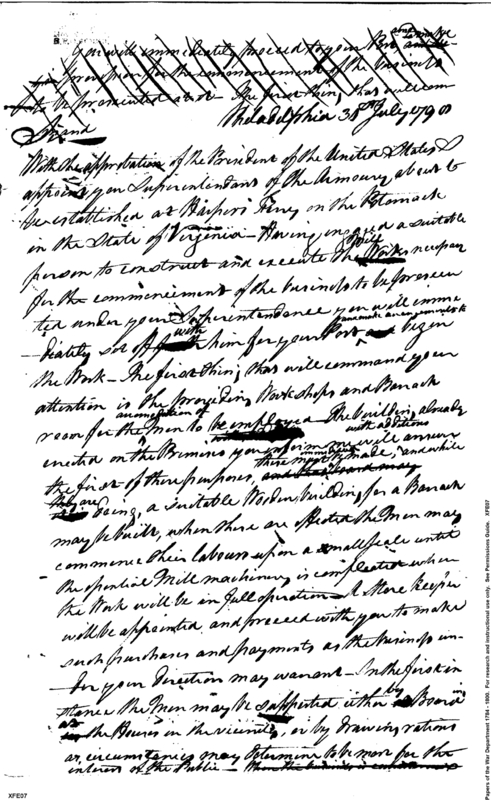 You will immediately proceed to your Post and make
provision for the commencement of the business
to be prosecuted at it - The first thing that will com
Philadelphia 31st July 1798
Strand
With the approbation of the President of the United States I
appoint you Superintendant of the Armoury about to
be established at Harpers Ferry on the Potomack
in the State of Virginia - Having engaged a suitable
person to construct and execute the Works necessary
for the commencement of the business to be prosecu
ted under your Superintendance you will imme
and make arrangements to
- diately set off with him for your Post begin
the Work - The first thing that will command your
attention is the providing Work shops and Barrack
accomodation of
room for the Men to be employed - The building already
with additions
erected on the Premises you inform me will answer
immediately
the first of these purposes, there must be made, and while
they are doing, a suitable Wooden building for a Barrack
may be built, when these are effected the Men may
commence their labours upon a small scale until
the essential Mill machinery is compleated when
the Work will be in full operation - A Store Keeper
will be appointed and proceed with you to make
such purchases and payments as the business un-
- der your direction may warrant - In the first in
stance the Men may be supported either by Board
ing
at the Houses in the vicinity, or by drawing rations
as circumstances may determine to be most for the
interest of the Public -
XFE07
Papers of the War Department 1784 - 1800. For research and instructional use only. See Permissions Guide. XFE07